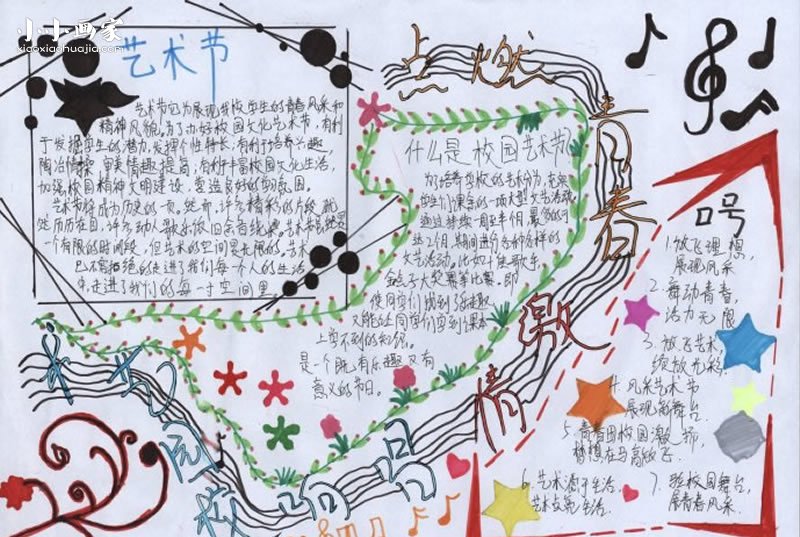 小小画家
xiaoxiaohuajia.com
艺术节
艺术节它为展现我校学生的青春风采和
精神风貌。为了办好校园文化艺术节，有利
于发掘学生的潜力，发挥个性特长，有利于培养兴趣，
陶冶情操，审美情趣提高，有利于丰富校园文化生活，
加强校园精神文明建设，营造良好的学习氛围。
艺术节将成为历史的一页。然而，许多精彩的片段就
然历历在目，许多动人歌乐依旧余音绕梁。艺术节虽然是
一个有限的时间段，但艺术的空间是无限的。艺术
已不容拒绝的走进了我们每一个人的生活
中，走进了我们的每一寸空间里。
点燃青春激情
什么是校园艺术节
为培养学校的艺术分为，充实
学生们课余的一项大型文艺活动
通过持续一周至半个月，最多的可
达2个月，期间进行各种各样的
文艺活动。比如十佳歌手，
金点子大奖赛等比赛。即
使同学们找到了乐趣
又能让同学们学到课本
上学不到的知识。
是一个既有乐趣又有
意义的节日。
口号
1.放飞理想，
展现风采
2.舞动青春，
活力无限
3.放飞艺术，
绽放光彩
4.风采艺术节
展现高舞台.
5.青春由校园激扬，
梦想在马高放飞.
6.艺术源于生活，
艺术点亮生活.
7.校园舞台，
展青春风采.
奏响校园文艺